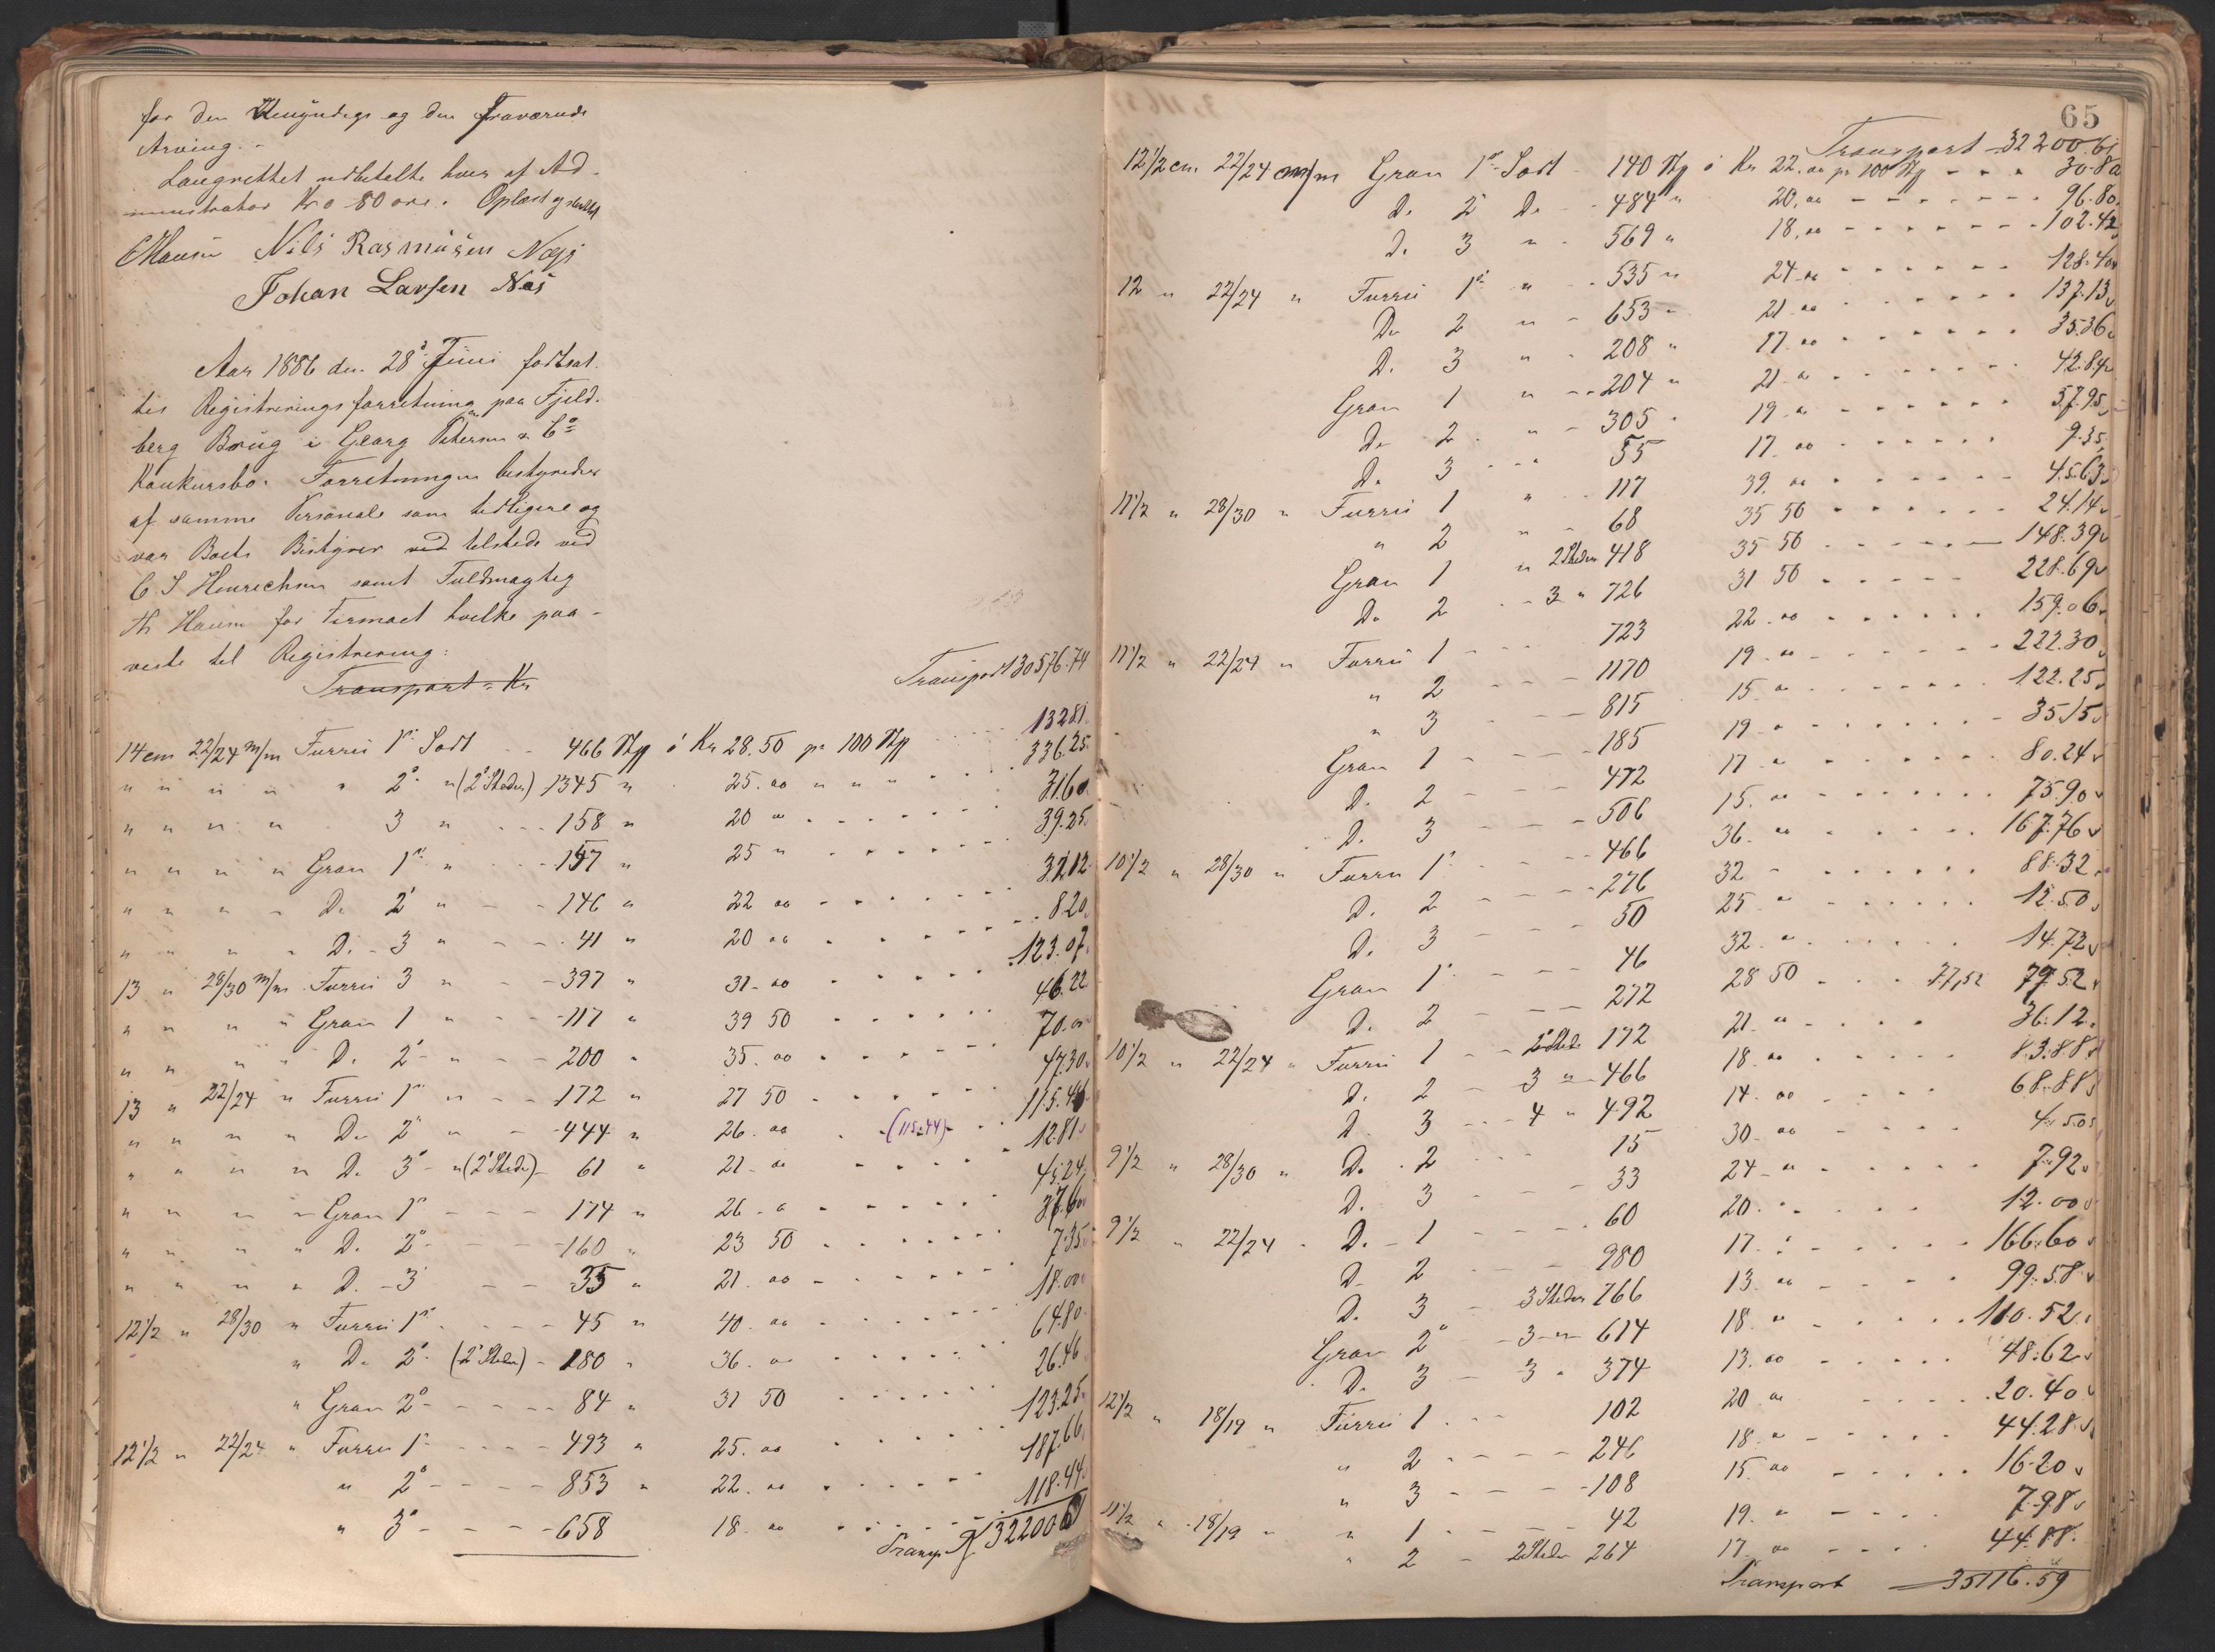 for den Umyndige og den fraværende
Arving. -
Laugrettet udbetalte hver af Ad-
ministrator Kr 0 80 øre. Oplæst og sluttet
CHansen Nils Rasmusen Næss
Johan Larsen Næs
Aar 1886 den 28de Juni fortsat-
tes Registreringsforretning paa Fjeld-
berg Brug i Georg Petersen & Co
Konkursbo. Forretningen bestyredes
af samme Personale som tidligere og
var Boets Bestyrer ved tilstede ved
C S Henrichsen samt Fuldmægtig
Th Hansen for Firmaet hvilke paa-
viste til Registrering:
Transport " Kr
Transport 30576.74
14 cm 22/24 m/m Furru 1ste Sort - - 466 Stk á Kr 28.50 pr 100 Stk 132 81
" " " " " 2den " (2de Steder) 1345 " 25. 00 " " " 336.25
" " " " 3 " - - - 158 " 20 " - - - 31.60
" " " " Gran 1ste " - - - 157 " 25 " - - - 39.25
" " " " Do 2 " - - 146 " 22 00 - - - 32.12
" " " " Do - 3 " - - 41 " 20 00 - - - 8.20
13 " 28/30 m/m Furru 3 " - - 397 " 31- 00 - - - 123.07
" " " " Gran 1 " - - 117 " 39 50 - - - 46.22
" " " " Do 2 - " - - 200 " 35. 00 - - - 70.00
13 " 22/24 " Furru 1ste " - - 172 " 27 50 - - - 47.30
" " " " Do 2 " - - 444 " 26. 00 - (115.44) - 115.44
" " " " Do 3 - " (2de Steder) - 61 " 21- 00 - - - 12.81
" " " " Gran 1ste - - - 174 " 26 - 0 - - - 45.24
" " " " Do 2den - - - 160 " 23 50 - - - 37.60
" " " " Do - 3 - - 35 " 21. 00 - - - 7.35
12 1/2 " 28/30 " Furru 1ste - - - 45 " 40. 00 - - - 18.00
" Do 2den (2de Steder) - 180 " 36. 00 - - - 64.80
" Gran 2den - - - 84 " 31 50 - - - 26.46
12 1/2 " 22/24 " Furru 1ste - - - 493 " 25. 00 - - - 123.25
" 2den - - - - 853 " 22. 00 - - - 187.66
" 3die - - - - 658 18. 00 - - - 118.44
Transp Kr 32200 61
65
Transport 32200 61
12 1/2 cm 22/24 m/m Gran 1ste Sort - 140 Stk á Kr 22.00 pr 100 Stk - - - 30.80
Do 2 Do - - 484 " 20,00 - - - 96.80
Do 3 " - 569 " 18,00 - - - 102.42
12 " 22/24 " Furru 1ste " - 535 " 24.00 - - - 128.40
Do 2 " - 653 " 21.00 - - - 137.13
Do 3 " - 208 " 17.00 - - - 35.36
Gran 1 " - - 204 " 21.0 - - - 42.84
Do 2 " - 305 " 19.0 - - - 57.95
Do 3 - - " 55 17.00 - - - 9.35
11 1/2 " 28/30 " Furru 1 " - - 117 39.00 - - - 45.63
" 2 " - 68 35 50 - - - 24.14
Gran 1 " 2 Steder 418 35 50 - - - 148.39
Do 2 - - 3 " 726 31 50 - - - 228.69
11 1/2 " 22/24 " Furru 1 - - - 723 22.00 - - - 159.06
" 2 - - - 1170 19.00 - - - 222.30
" 3 - - - 815 15.0 - - - 122.25
Gran 1 - - - 185 19.0 - - - 35.15
Do 2 - - - 472 17.0 - - - 80.24
Do 3 - - - 506 15.00 - - - 75.90
10 1/2 " 28/30 " Furru 1ste - - - 466 36.00 - - - 167.76
Do 2 - - - 276 32 - - - 88.32
Do 3 - - - 50 25 " - - - 12.50
Gran 1ste - - - 46 32.0 - - - 14.72
Do 2 - - - 272 28 50 - - - 77,52 77.52
10 1/2 " 22/24 " Furru 1 - - 2 Steder 172 21.00 - - - 36.12
Do 2 - 3 " - 466 18.00 - - - 83.88
Do 3 - - - 4 " 492 14.00 - - - 68.88
9 1/2 " 28/30 " Do 2 - - - 15 30.00 - - - 4.50
Do 3 - - - 33 24- " - - - 7.92
9 1/2 " 22/24 - Do - 1 - - - 60 20. " - - - 12.00
Do 2 - - - 980 17. " - - - 166.60
Do 3 - 3 Steder 766 13.00 - - - 99.58
Gran 2den - 3 - " - 614 18 " - - - 110.52
Do 3 - 3 " 374 13.00 - - - 48.62
12 1/2 " 18/19 " Furru 1 - - - 102 20 00 - - - 20.40
" 2 - - - 246 18.0 - - - 44.28
" 3 - - - 108 15.00 - - - 16.20
11 1/2 " 18/19 " " 1 - - - 42 19.0 - - - 7.98
" 2 - 2 Steder 264 17.00 - - - 44.88
Transport 35116.59